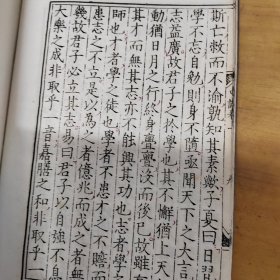 斯亡救而不渝孰知其素歟子夏曰日習
學不忘自勉則身不墮亟聞天下之大言
志益廣故君子之於學也其不懈猶上天
動猶日月之行終身亹亹沒而後已故雖有
其才而無其志亦不能興其功也志者學
師也才者學之徒也學者不患才之不贍而
患志之不立是以為之者億兆而成之者
幾故君子必立其志易曰君子以自強不息
大樂之成非取乎一音嘉膳之和非取乎一